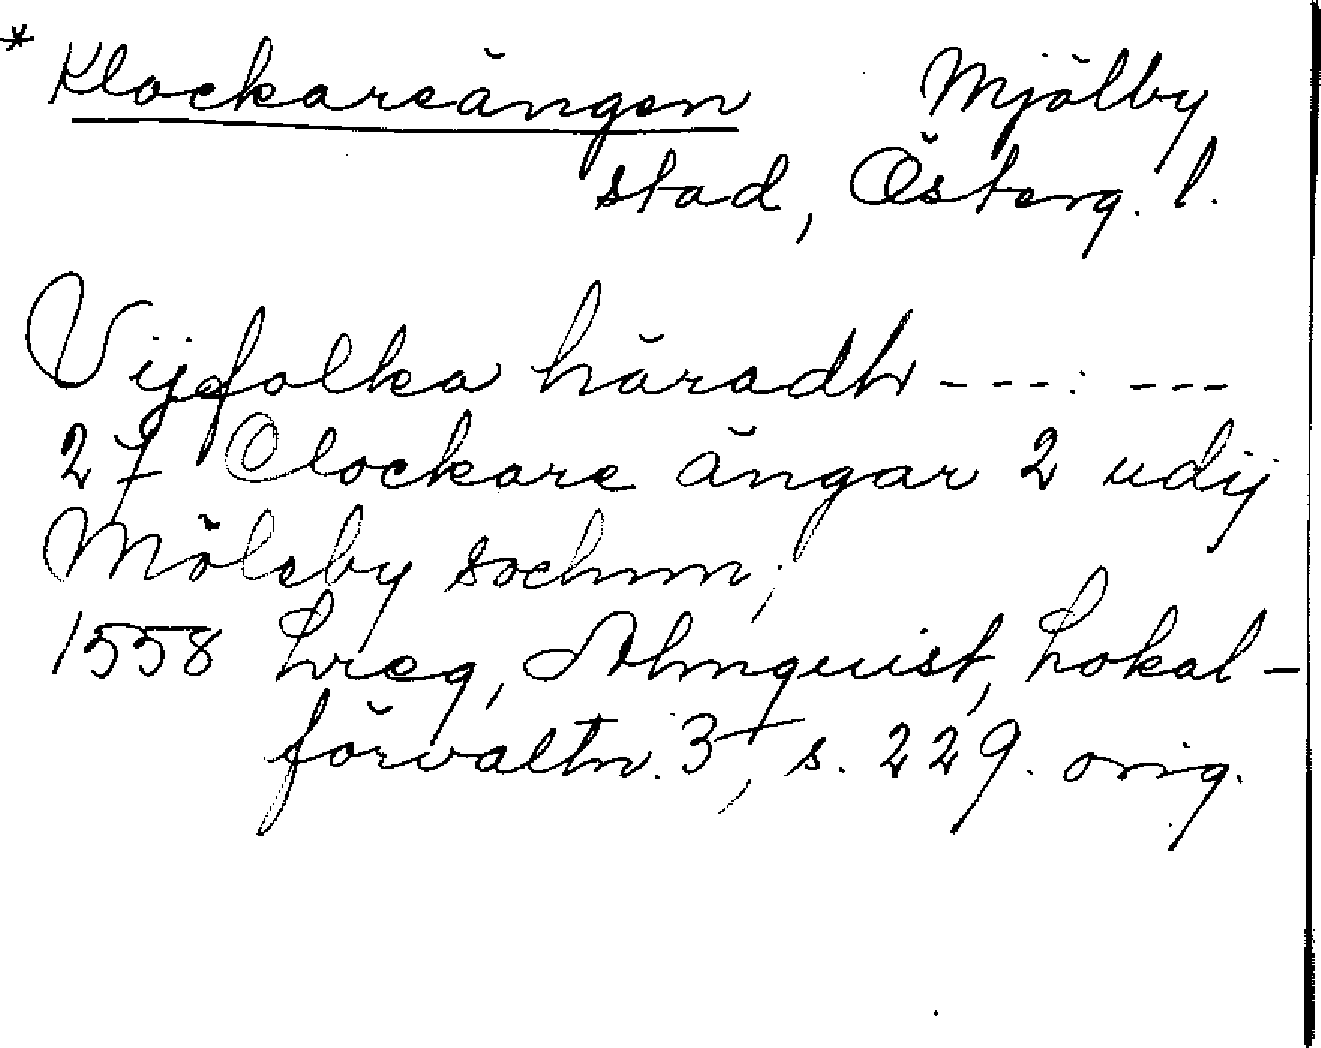 * Klockareängen Mjölby
stad, Österg. l.
Vijfolka häradh ---:---
27 Clockare ängar 2 udij
Möleby sochnn;
1558 Lreg, Almquist, Lokal-
förvaltn. 3, s. 229. orig.